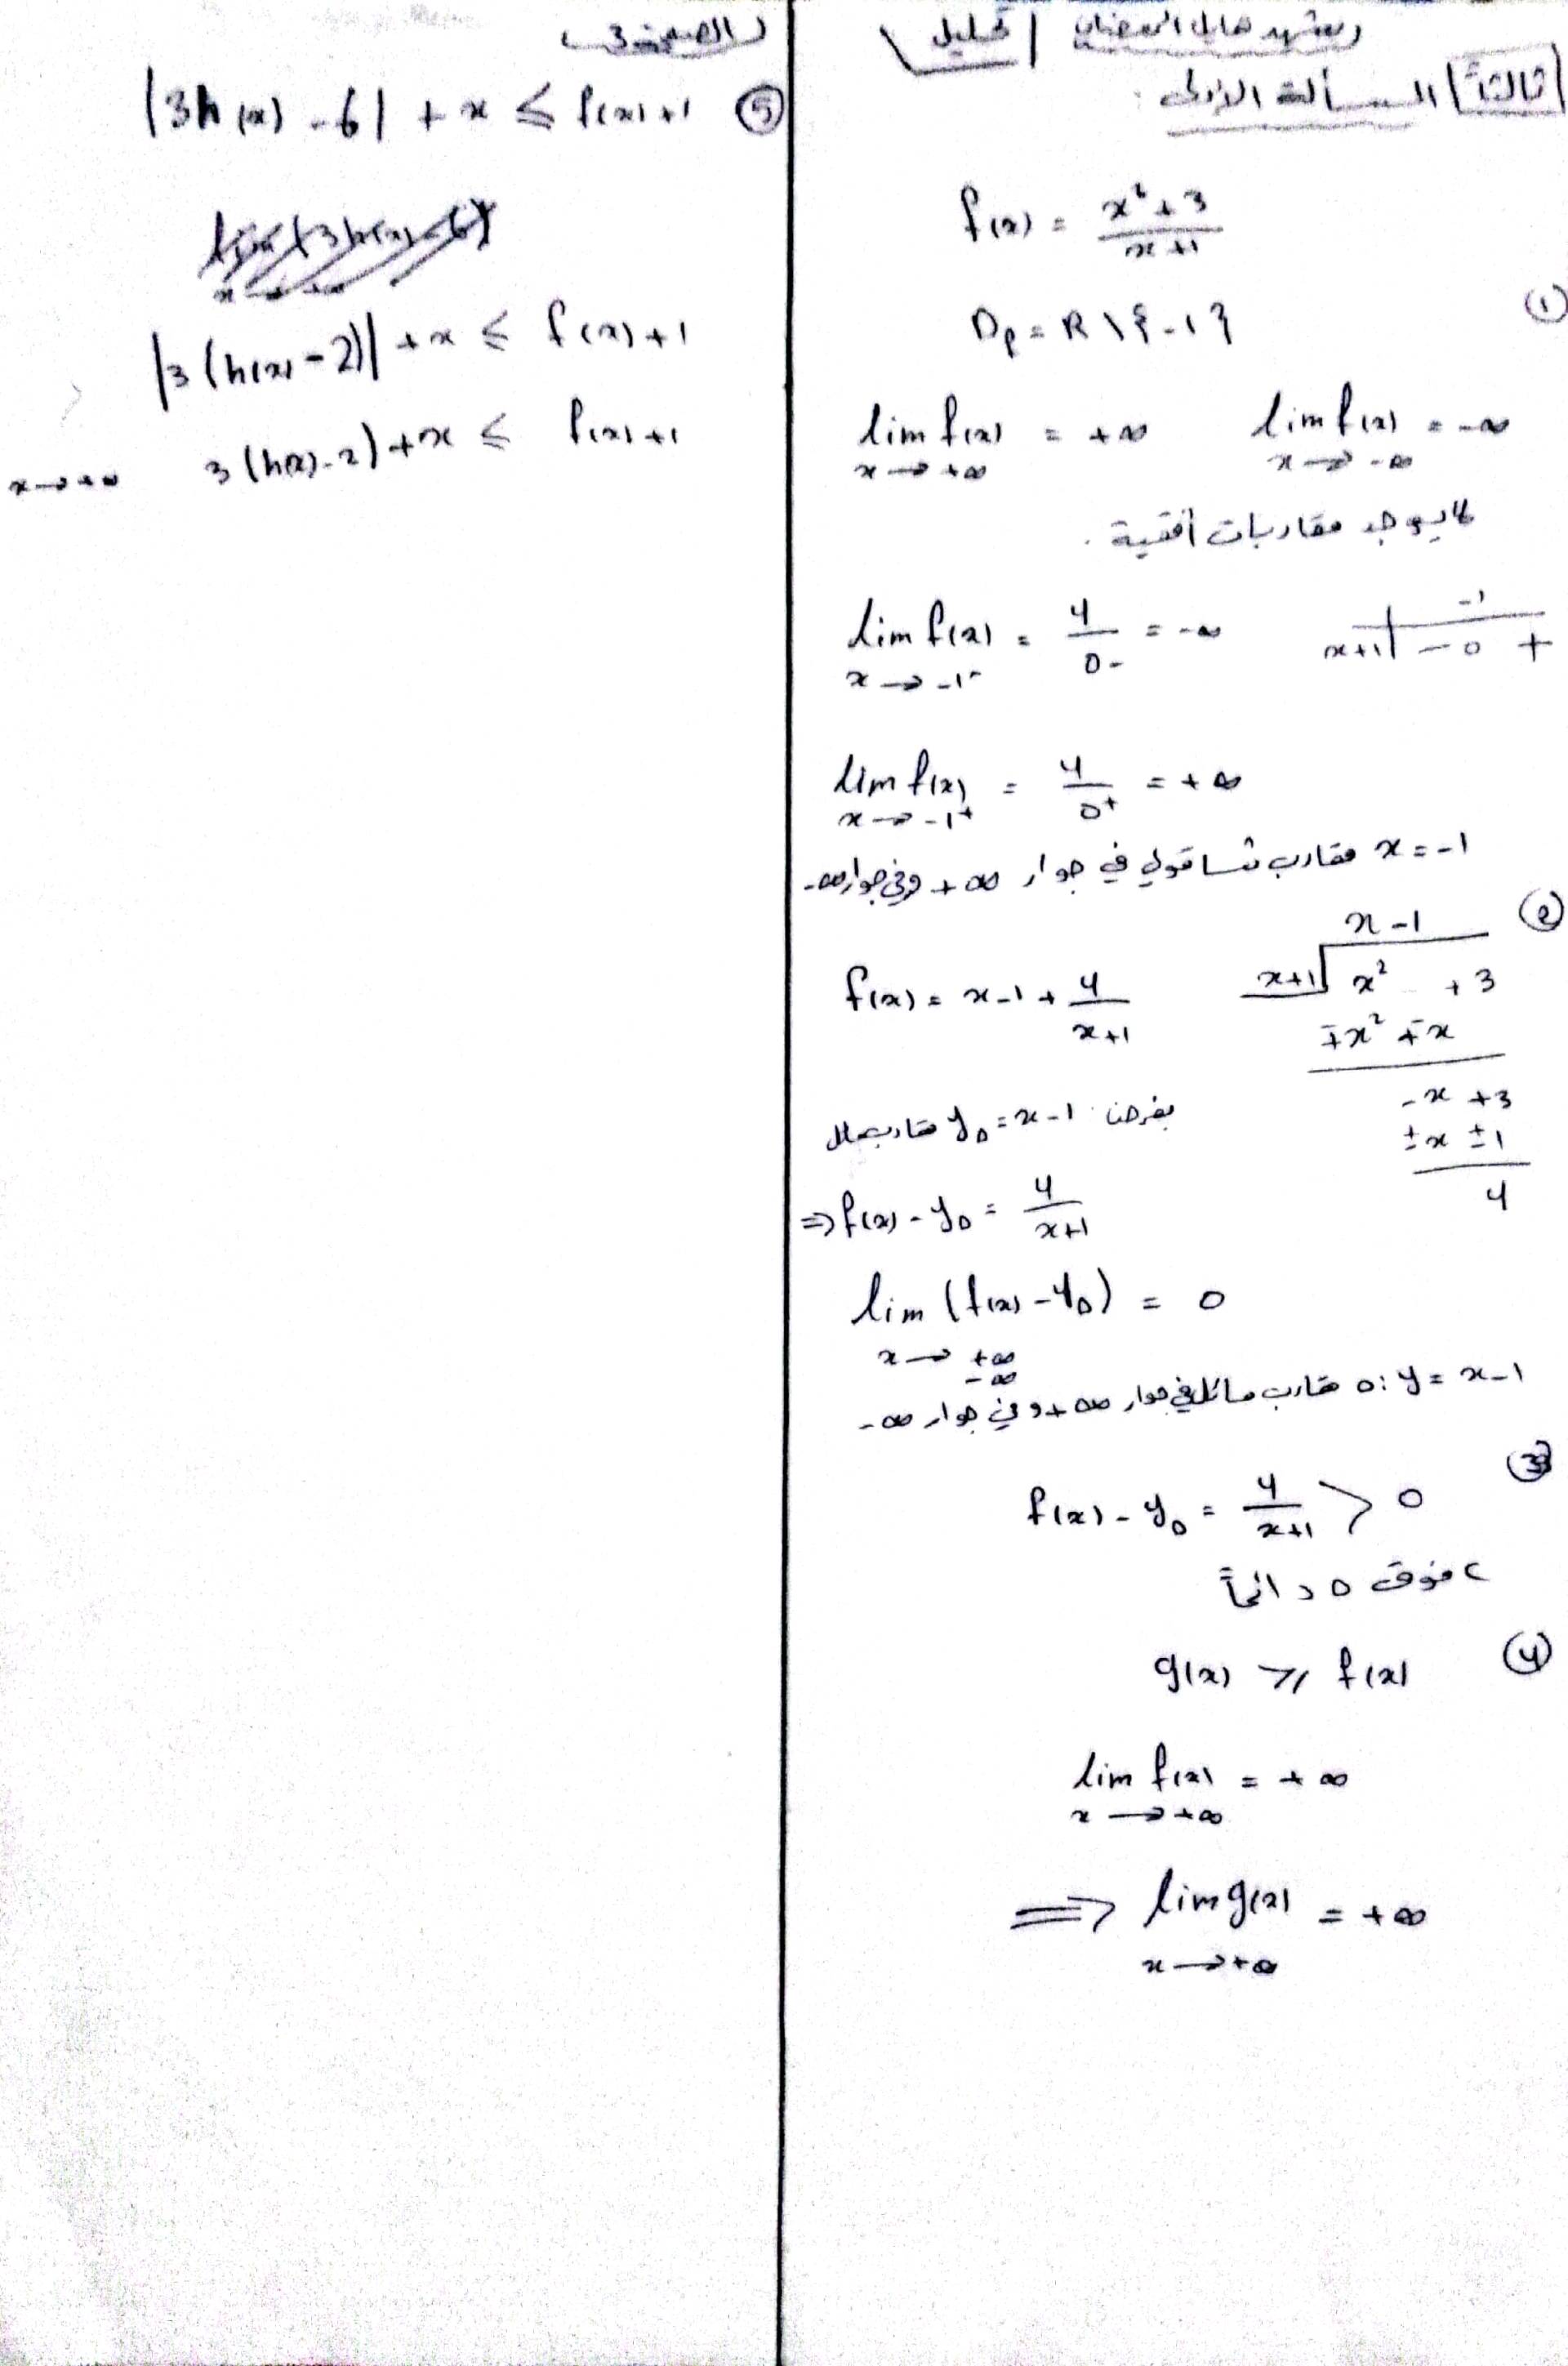 تحليل
ثالثاً المسألة الأولى :
f(x) = \frac{x^2+3}{x+1}
① D_f = R \ {-1}
lim f(x) = +∞ lim f(x) = -∞
x → +∞ x → -∞
لا يوجد مقاربات أفقية .
lim f(x) = \frac{4}{0-} = -∞
x → -1-
-1
x+1 | - 0 +
lim f(x) = \frac{4}{0+} = +∞
x → -1+
x = -1 مقارب شاقولي في جوار +∞ وفي جوار -∞
②
x - 1
x+1 | x^2 + 3
∓x^2 ∓x
-x +3
±x ±1
4
f(x) = x-1 + \frac{4}{x+1}
بفرض y_Δ = x-1 مقارب مائل
⇒ f(x) - y_Δ = \frac{4}{x+1}
lim (f(x) - y_Δ) = 0
x → +∞
-∞
Δ: y = x-1 مقارب مائل في جوار +∞ وفي جوار -∞
③ f(x) - y_Δ = \frac{4}{x+1} > 0
c فوق Δ دائماً
④ g(x) ≥ f(x)
lim f(x) = +∞
x → +∞
⇒ lim g(x) = +∞
x → +∞
الصفحة 3
⑤ |3h(x) - 6| + x ≤ f(x) + 1
|3(h(x) - 2)| + x ≤ f(x) + 1
x → +∞ 3(h(x) - 2) + x ≤ f(x) + 1